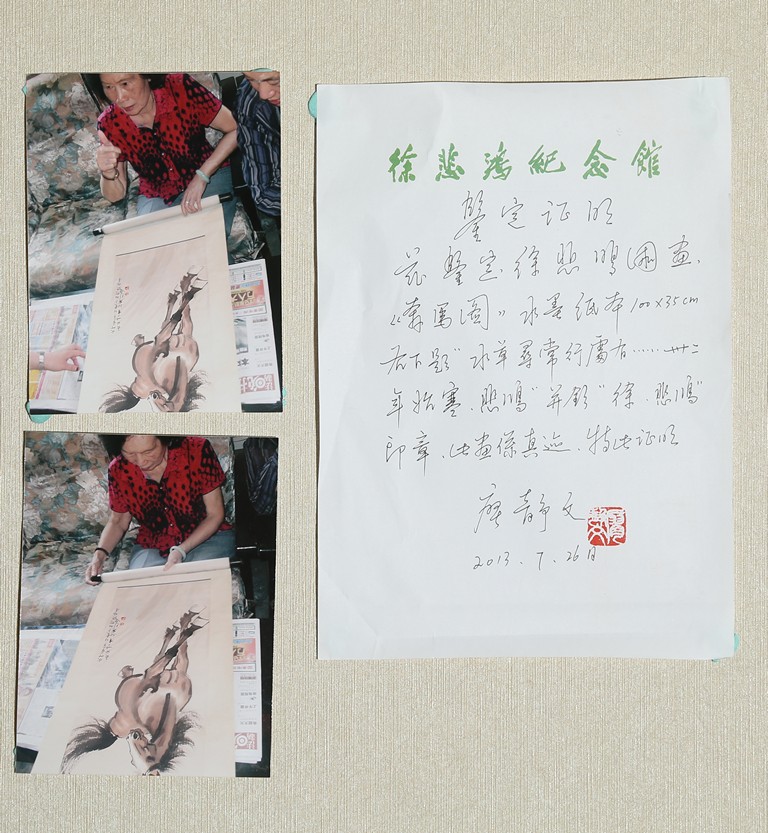 徐悲鸿纪念館
鉴定证明
兹鉴定徐悲鸿国画、
《奔馬圖》水墨纸本100×35cm
右下题"水草尋常行處有……卅二
年始寒.悲鸿"并钤"徐.悲鸿"
印章.此画係真迹.特此证明
廖静文
2013.7.26日